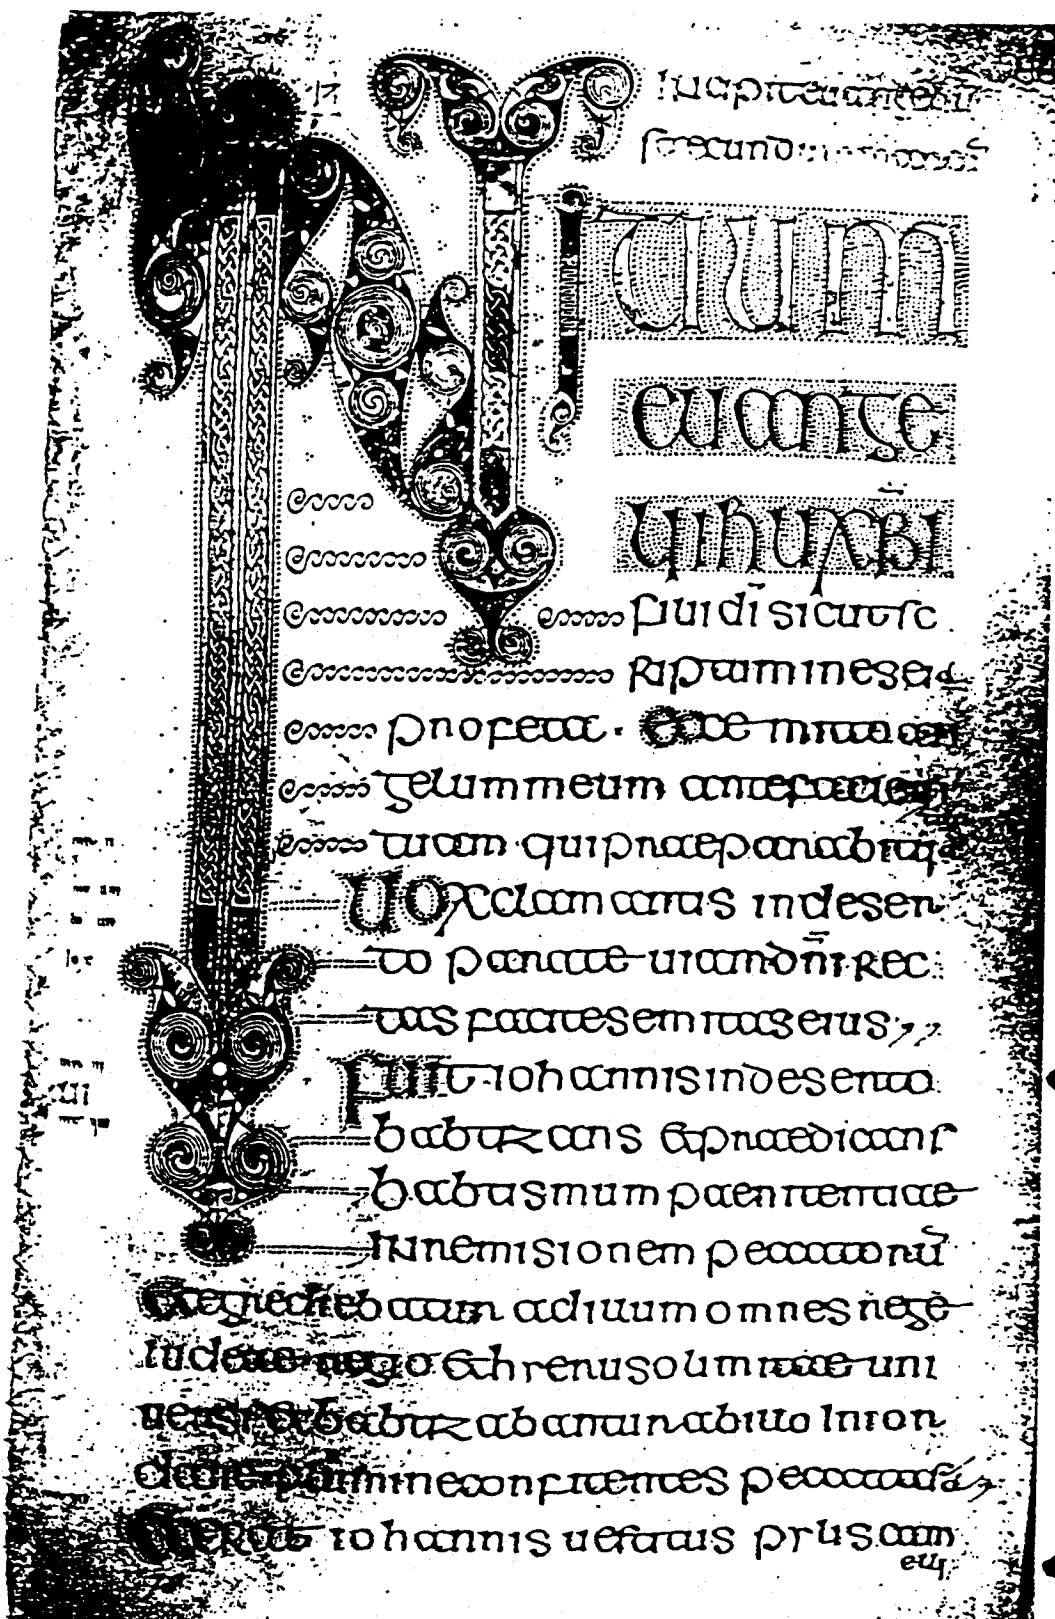 secundum
INITIUM
euange
lii ihu xpi
fili di sicut sc
riptum in esei
profeta · Ecce mitto an
gelum meum ante faciem
tuam qui praeparabit
Uox clamantis in deser
to parate uiam dni rec
tas facite semitas eius
Fuit iohannis in deserto
babtizans & praedicans
babtismum paenitentiae
in remisionem peccatorū
& egrediebatur ad illum omnes
iudeae regio & hierusolimitae uni
uersi & babtizabantur ab illo in ior
dane flumine confitentes peccata sua
& erat iohannis uestitus pilus cam
eli